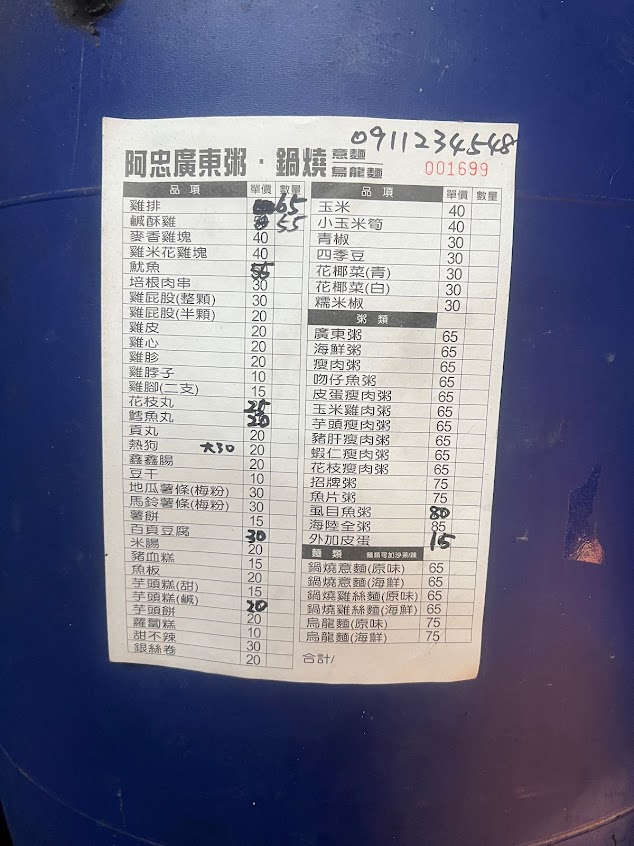 0911234548
阿忠廣東粥．鍋燒 意麵 烏龍麵
001699
品項 單價 數量
雞排 65
鹹酥雞 55
麥香雞塊 40
雞米花雞塊 40
魷魚 55
培根肉串 30
雞屁股(整顆) 30
雞屁股(半顆) 20
雞皮 20
雞心 20
雞胗 20
雞脖子 10
雞腳(二支) 15
花枝丸 25
鱈魚丸 20
貢丸 20
熱狗 大30 20
鑫鑫腸 20
豆干 10
地瓜薯條(梅粉) 30
馬鈴薯條(梅粉) 30
薯餅 15
百頁豆腐 30
米腸 20
豬血糕 15
魚板 20
芋頭糕(甜) 15
芋頭糕(鹹) 20
芋頭餅 20
蘿蔔糕 10
甜不辣 30
銀絲卷 20
品項 單價 數量
玉米 40
小玉米筍 40
青椒 30
四季豆 30
花椰菜(青) 30
花椰菜(白) 30
糯米椒 30
粥類
廣東粥 65
海鮮粥 65
瘦肉粥 65
吻仔魚粥 65
皮蛋瘦肉粥 65
玉米雞肉粥 65
芋頭瘦肉粥 65
豬肝瘦肉粥 65
蝦仁瘦肉粥 65
花枝瘦肉粥 65
招牌粥 75
魚片粥 75
虱目魚粥 80
海陸全粥 85
外加皮蛋 15
麵類 麵類可加沙茶/辣
鍋燒意麵(原味) 65
鍋燒意麵(海鮮) 65
鍋燒雞絲麵(原味) 65
鍋燒雞絲麵(海鮮) 65
烏龍麵(原味) 75
烏龍麵(海鮮) 75
合計/